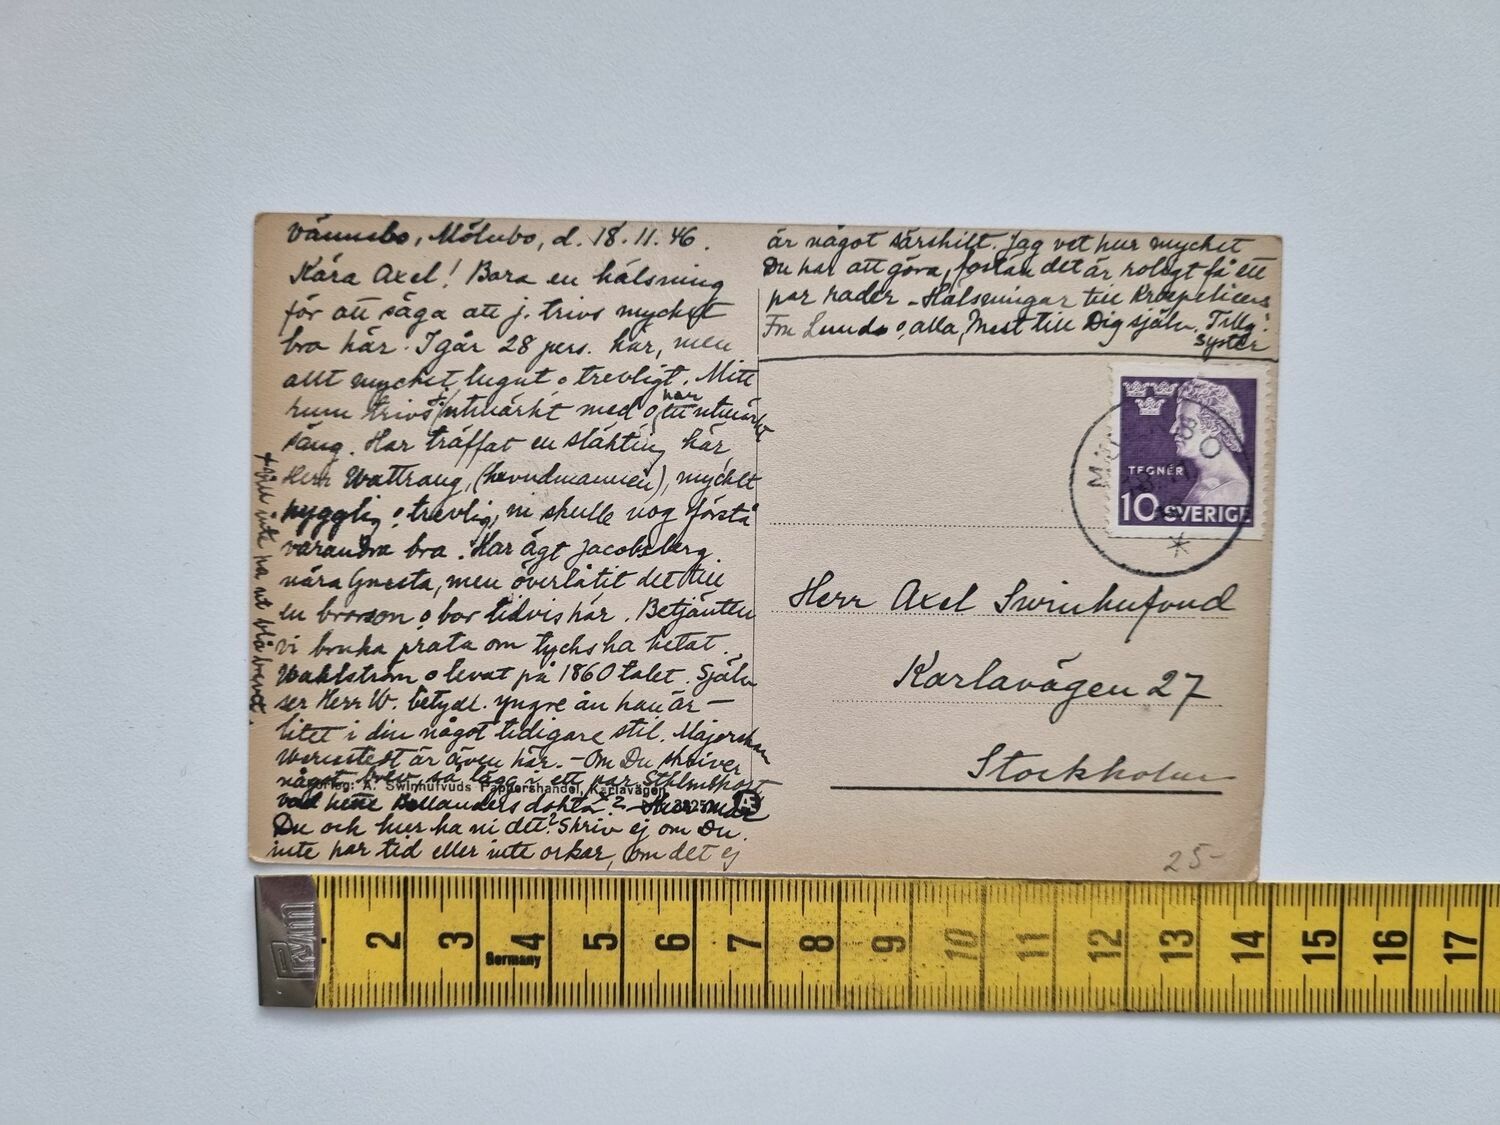 Vännebo, Mölnbo, d. 18.11.46.
Kära Axel! Bara en hälsning
för att säga att j. trivs mycket
bra här. Igår 28 pers. här, men
allt mycket lugnt o trevligt. Mitt
rum trivs j. utmärkt med o har ett utmärkt
säng. Har träffat en släkting här,
Herr Wattrang, (hovudmannen), mycket
hygglig o trevlig, vi skulle nog förstå
varandra bra. Har ägt Jacobsberg
nära Gnesta, men överlåtit det till
en brorson o bor tidvis här. Betjänten
vi bruka prata om tycks ha hetat
Wahlström o levat på 1860 talet. Själv
ser Herr W. betydl. yngre än han är –
litet i din något tidigare stil. Majorskan
Wernstedt är även här. – Om Du skriver
något brev, så lägg i ett par Sthlmspost
Förlag: A. Swinhufvuds Pappershandel, Karlavägen
vad heter dokt.?
Du och hur ha ni det? Skriv ej om Du
inte har tid eller inte orkar, om det ej
är något särskilt. Jag vet hur mycket
Du har att göra, fastän det är roligt få ett
par rader – Hälsningar till
Fru Lunds o alla, Mest till Dig själv. Tillg:
Syster
TEGNÉR
10 SVERIGE
Herr Axel Swinhufvud
Karlavägen 27
Stockholm
25-
Germany
2 3 4 5 6 7 8 9 10 11 12 13 14 15 16 17